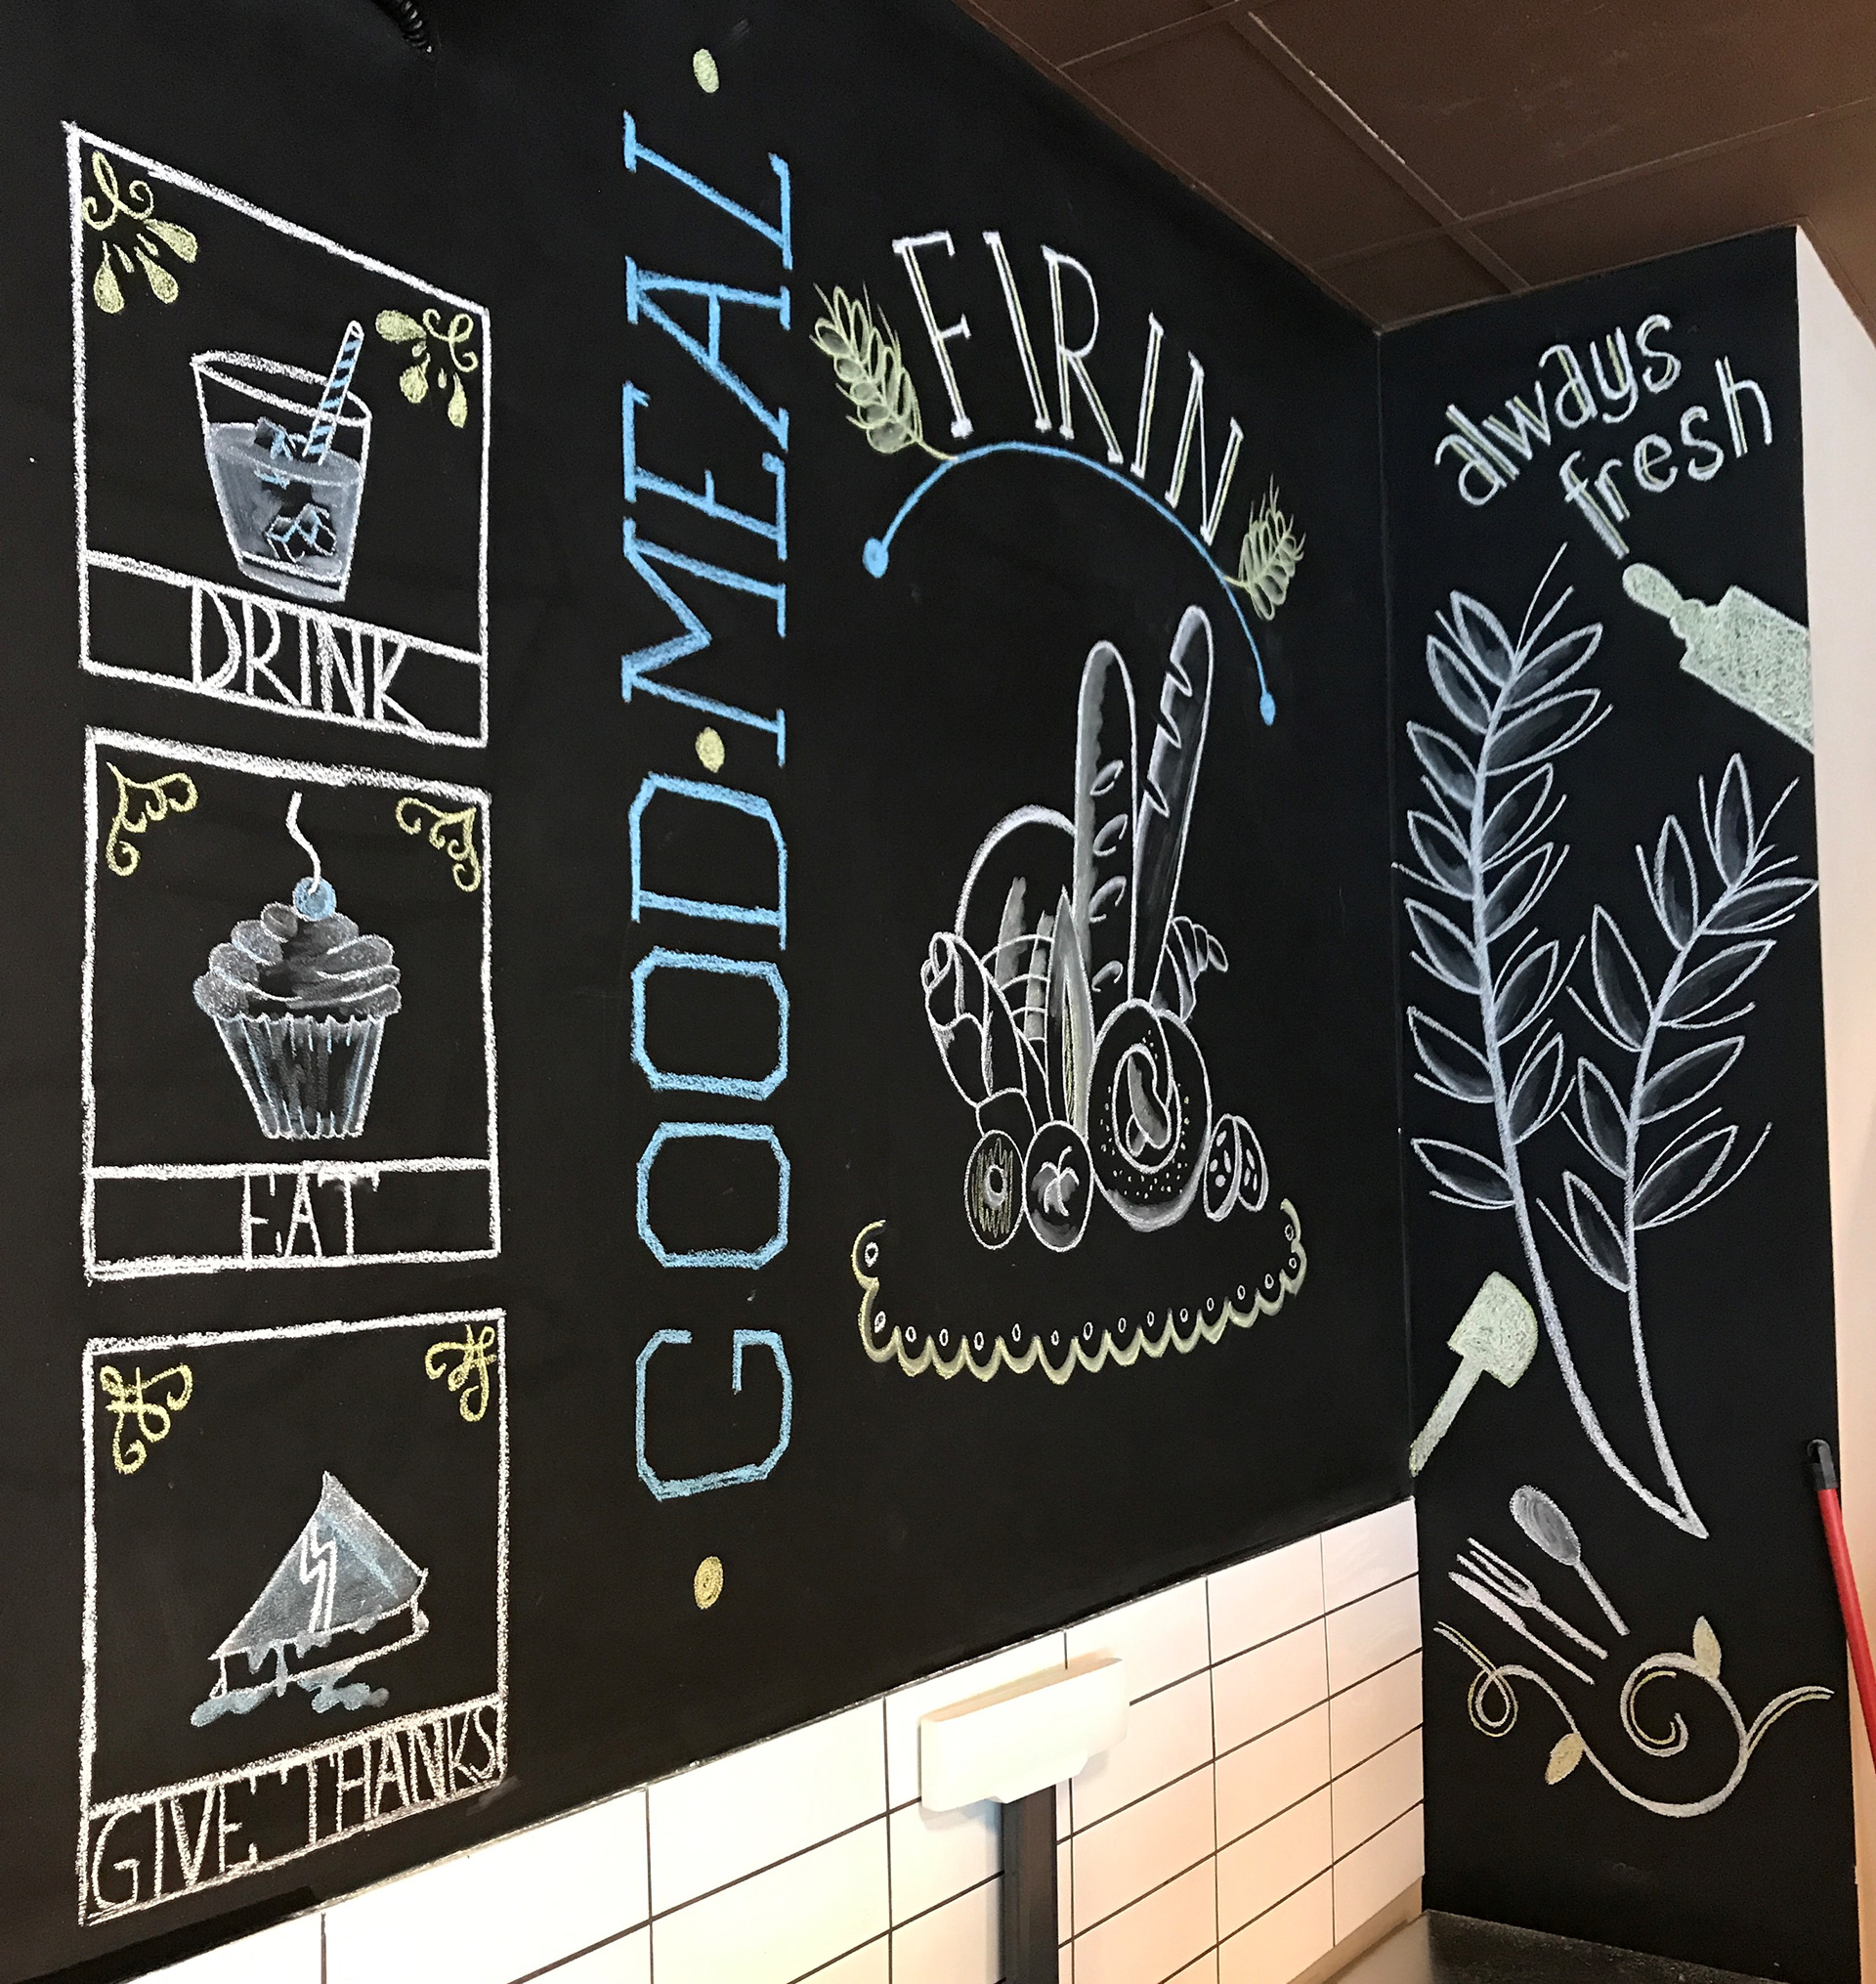 DRINK
EAT
GIVE THANKS
GOOD • MEAL
FIRIN
always
fresh